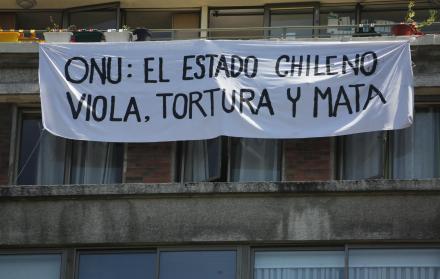 ONU: EL ESTADO CHILENO
VIOLA, TORTURA Y MATA